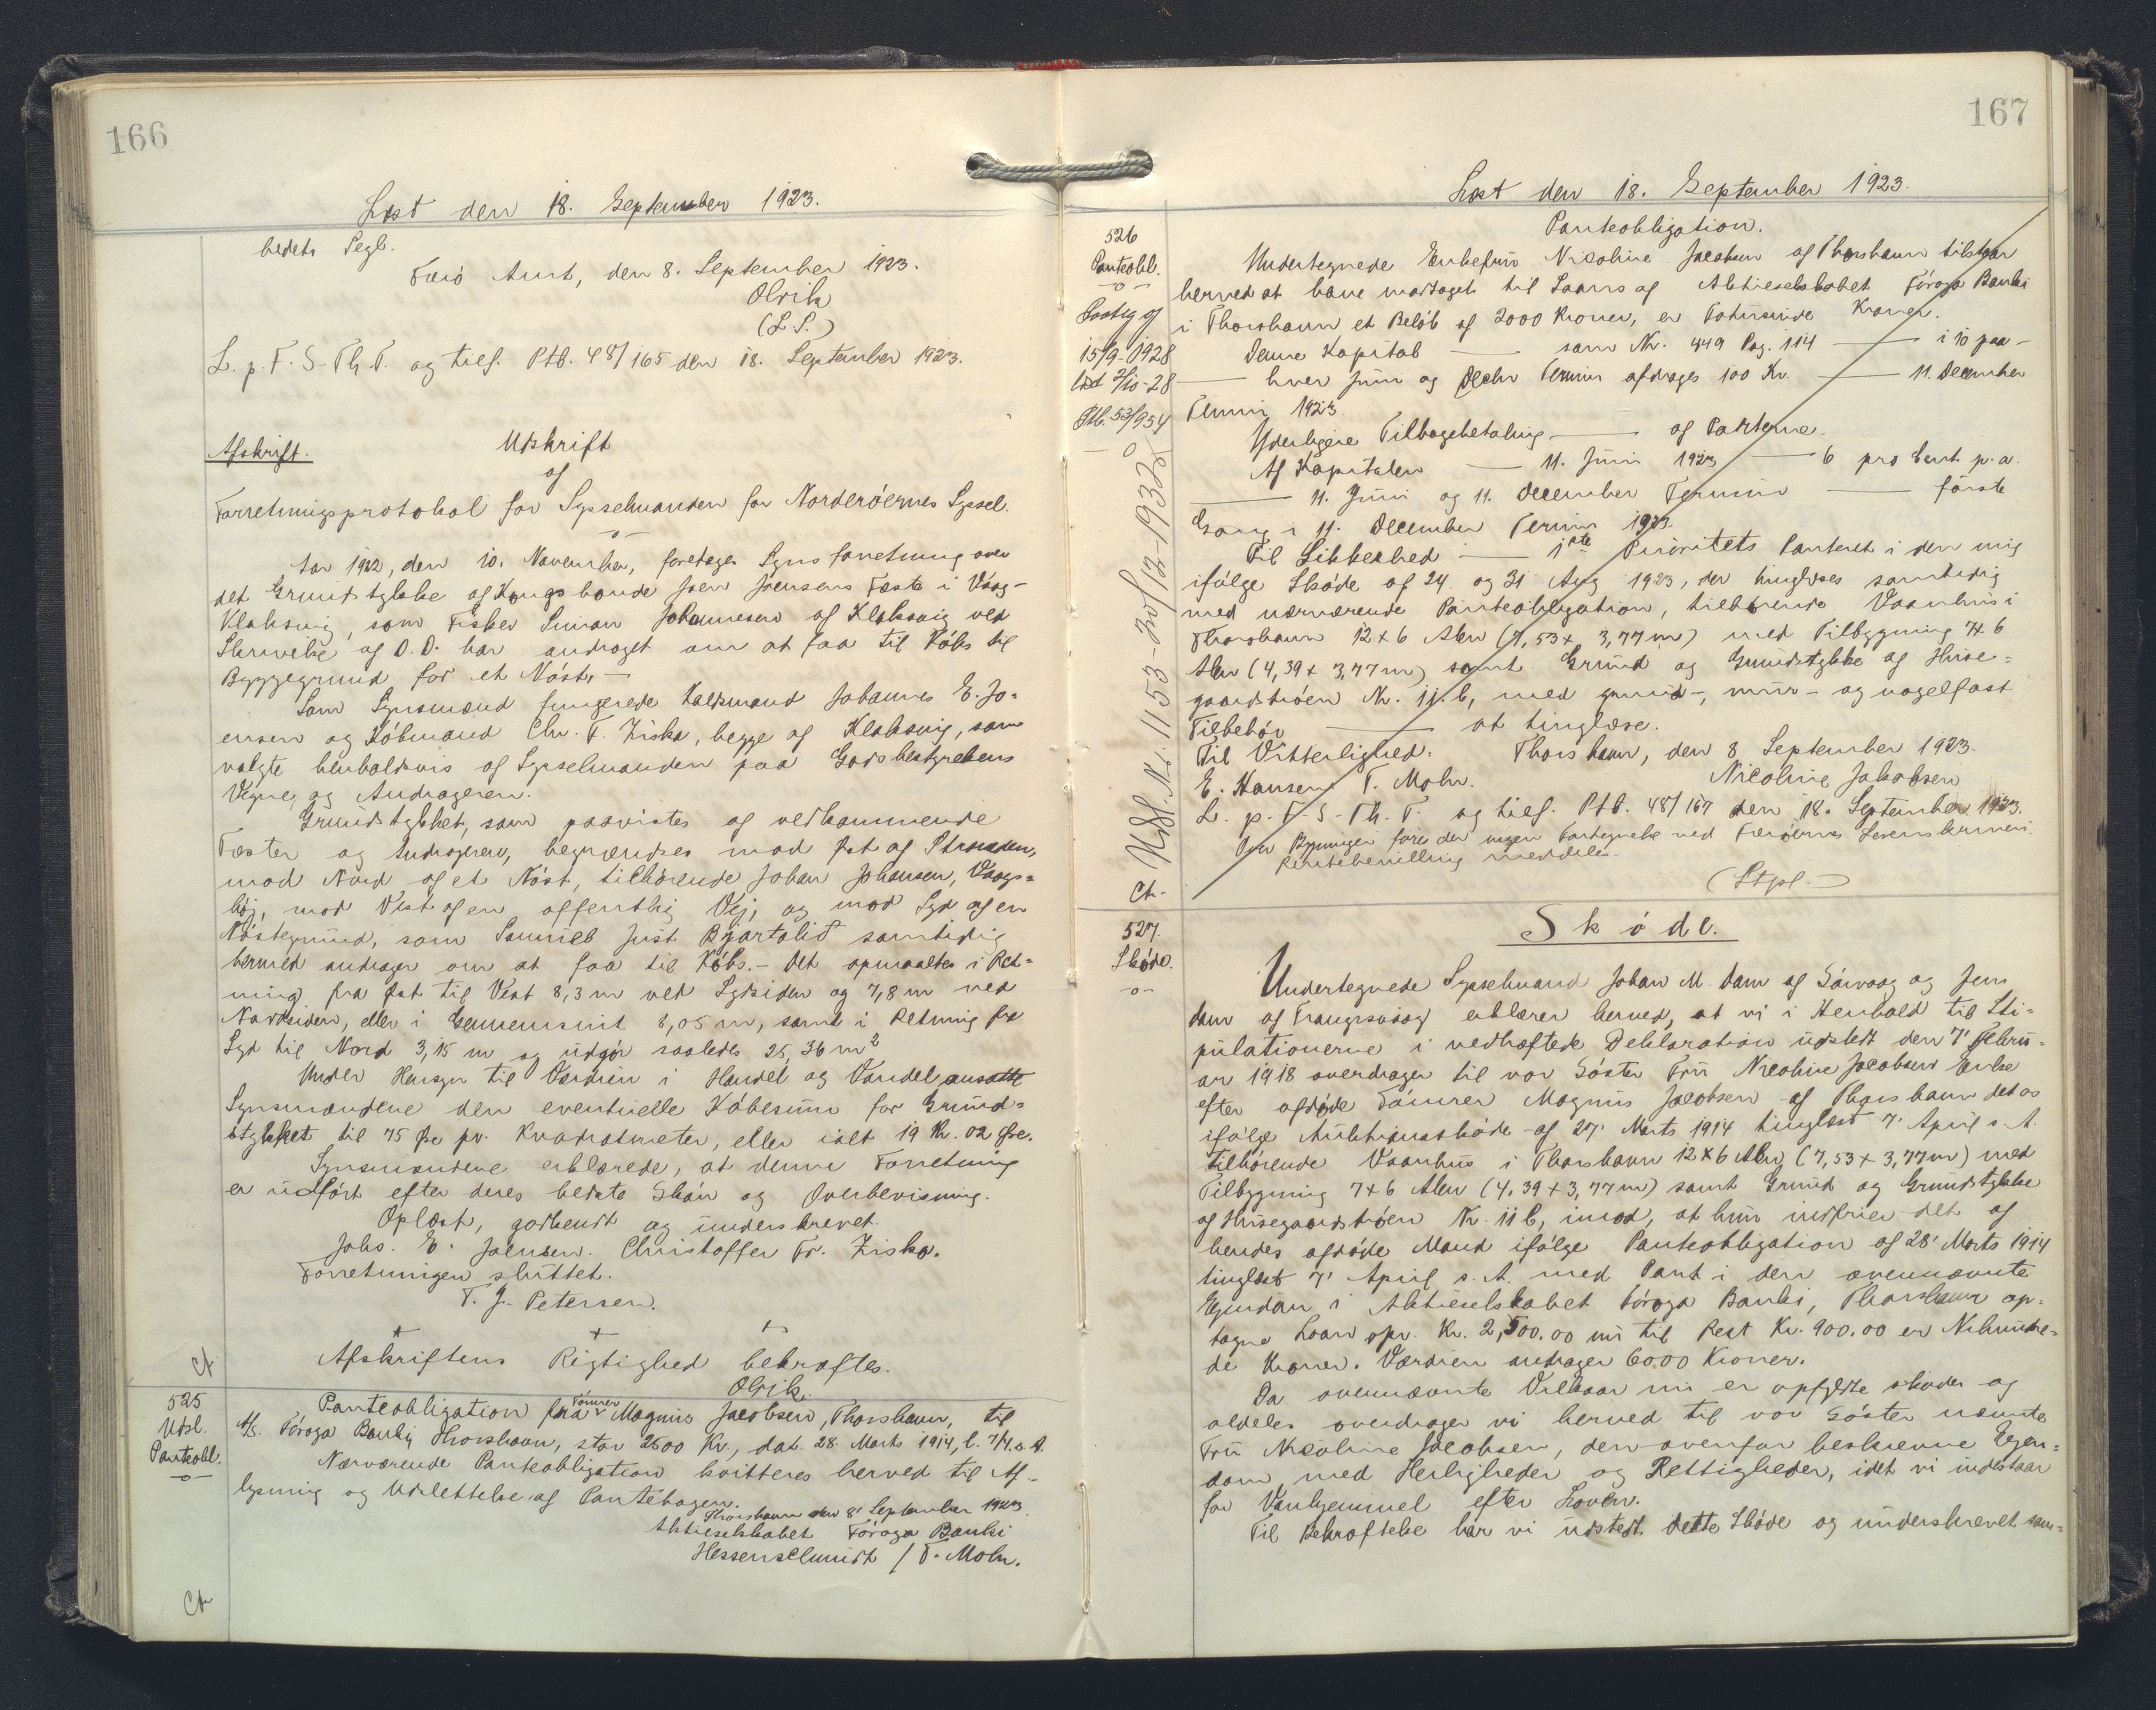 166
Læst den 18. September 1923.
hedets Segl.
Færö Amt, den 8. September 1923.
Olrik
(L.S.)
L. p. F. S-Th.T. og tilf. Ptb. 48/165 den 18. September 1923.
Afskrift.
Udskrift
af
Forretningsprotokol for Sysselmanden for Norderöernes Syssel.
-o-
Aar 1922, den 10. November, foretoges Synsforretning over
det Grundstykke af Kongsbonde Joen Joensens Fæste i Vaag-
Klaksvig, som Fisker Simon Johannesen af Klaksvig ved
Skrivelse af D.D. har andraget om at faa til Köbs til
Byggegrund for et Nöst. -
Som Synsmænd fungerede Kaldsmand Johannes E. Jo=
ensen og Köbmand Chr. F. Ziska, begge af Klaksvig, som
valgte henholdsvis af Sysselmanden paa Godsbestyrelsens
Vegne, og Andrageren.
Grundstykket, som paavistes af vedkommende
Fæster og Andrageren, begrændses mod Øst af Stranden,
mod Nord af et Nöst, tilhörende Johan Johansen, Vaags=
höj, mod Vest af en offentlig Vej, og mod Syd af en
Nöstegrund, som Samuel Just Bjartalid samtidig
hermed andrager om at faa til Köbs. - Det opmaaltes i Ret=
ning fra Øst til Vest 8,3 m ved Sydsiden og 7,8 m ved
Nordsiden, eller i Gennemsnit 8,05 m, samt i Retning fra
Syd til Nord 3,15 m og udgör saaledes 25,36 m²
Under Hensyn til Værdien i Handel og Vandel ansatte
Synsmændene den eventuelle Köbesum for Grund=
stykket til 75 Øre pr. Kvadratmeter, eller ialt 19 Kr. 02 Øre.
Synsmændene erklærede, at denne Forretning
er udfört efter deres bedste Skön og Overbevisning.
Oplæst, godkendt og underskrevet.
Johs. E. Joensen. Christoffer Fr. Ziska.
Forretningen sluttet.
T. J. Petersen.
Afskriftens Rigtighed bekræftes.
Olrik.
525
Udsl.
Panteobl.
-o-
Panteobligation fra Tömrer Magnus Jacobsen, Thorshavn, til
A/S. Föroya Banki Thorshavn, stor 2500 Kr., dat. 28. Marts 1914, l. 7/4 s. A.
Nærværende Panteobligation kvitteres herved til Af-
lysning og Udslettelse af Pantebogen.
Thorshavn den 8' September 1923
Aktieselskabet Föroya Banki
Hessenschmidt / T. Mohr.
167
Læst den 18. September 1923.
526
Panteobl.
-o-
15/9-1928
Læst 2/10-28
Ptb. 53/954
Panteobligation.
Undertegnede Enkefru Nicoline Jacobsen af Thorshavn tilstaar
herved at have modtaget til Laans af Aktieselskabet Föroya Banki
i Thorshavn et Belöb af 2000 Kroner, er Totusinde Kroner.
Denne Kapital — som Nr. 449 Pag. 114 — i 10 paa-
— hver Juni og Decbr Termin afdrages 100 Kr. — 11. December
Termin 1923.
Yderligere Tilbagebetaling — af Parterne.
Af Kapitalen — 11. Juni 1923 — 6 pro Cent p.a.
— 11. Juni og 11. December Termin — förste
Gang i 11. December Termin 1923.
Til Sikkerhed — 1ste Prioritets Panteret i den mig
ifölge Sköde af 24. og 31 Aug 1923, der tinglæses samtidig
med nærværende Panteobligation, tilhörende Vaanhus i
Thorshavn 12 x 6 Alen (7,53 x 3,77 m) med Tilbygning 7 x 6
Alen (4,39 x 3,77 m) samt Grund og Grundstykke af Huse=
gaardströen Nr. 11.b, med grund-, mur- og nagelfast
Tilbehör — at tinglæse.
Til Vitterlighed: Thorshavn, den 8 September 1923.
E. Hansen T. Mohr. Nicoline Jakobsen
L. p. F-S-Th.T. og tilf. Ptb. 48/167 den 18. September 1923.
(Stpl.-)
527.
Sköde.
-o-
Sköde.
Undertegnede Sysselmand Johan M. Dam af Sörvaag og Jens
Dam af Frangisvaag erklærer herved, at vi i Henhold til Sti=
pulationerne i vedhæftede Deklaration udstedt den 7' Febru=
ar 1918 overdrager til vor Söster Fru Nicoline Jacobsen Enke
efter afdöde Tömrer Magnus Jacobsen af Thorshavn det os
ifölge Auktionssköde af 27' Marts 1914 tinglæst 7' April s. A.
tilhörende Vaanhus i Thorshavn 12 x 6 Alen (7,53 x 3,77 m) med
Tilbygning 7 x 6 Alen (4,39 x 3,77 m) samt Grund og Grundstykke
af Husegaardströen Nr. 11 b, imod, at hun indfrier det af
hendes afdöde Mand ifölge Panteobligation af 28' Marts 1914
tinglæst 7' April s. A. med Pant i den ovennævnte
Ejendom i Aktieselskabet Föroya Banki, Thorshavn op=
tagne Laan opr. Kr. 2,500.00 nu til Rest Kr. 900.00 er Nihundre=
de Kroner. Værdien andrager 6000 Kroner.
Da ovennævnte Vilkaar nu er opfyldte sköder og
aldeles overdrager vi herved til vor Söster nævnte
Fru Nicoline Jacobsen, den ovenfor beskrevne Ejen=
dom med Herligheder og Rettigheder, idet vi indestaar
for Vanhjemmel efter Loven.
Til Bekræftelse har vi udstedt dette Sköde og underskrevet sam=